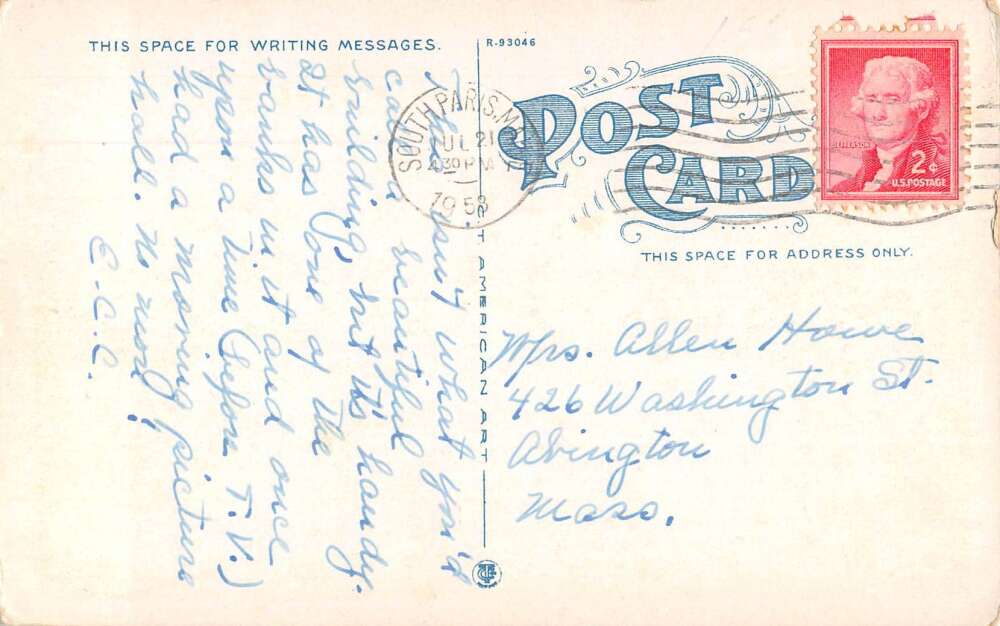 THIS SPACE FOR WRITING MESSAGES.
R-93046
POST
CARD
SOUTH PARIS, M
JUL 21
4 30 PM
1958
JEFFERSON
2¢
U.S. POSTAGE
THIS SPACE FOR ADDRESS ONLY.
AMERICAN ART
isn't what you'd
call beautiful
building, but it's handy.
It has one of the
banks in it and once
upon a time (before T.V.)
had a moving picture
hall. No more!
E.C.C.
Mrs. Allen Howe
426 Washington St.
Abington
Mass.